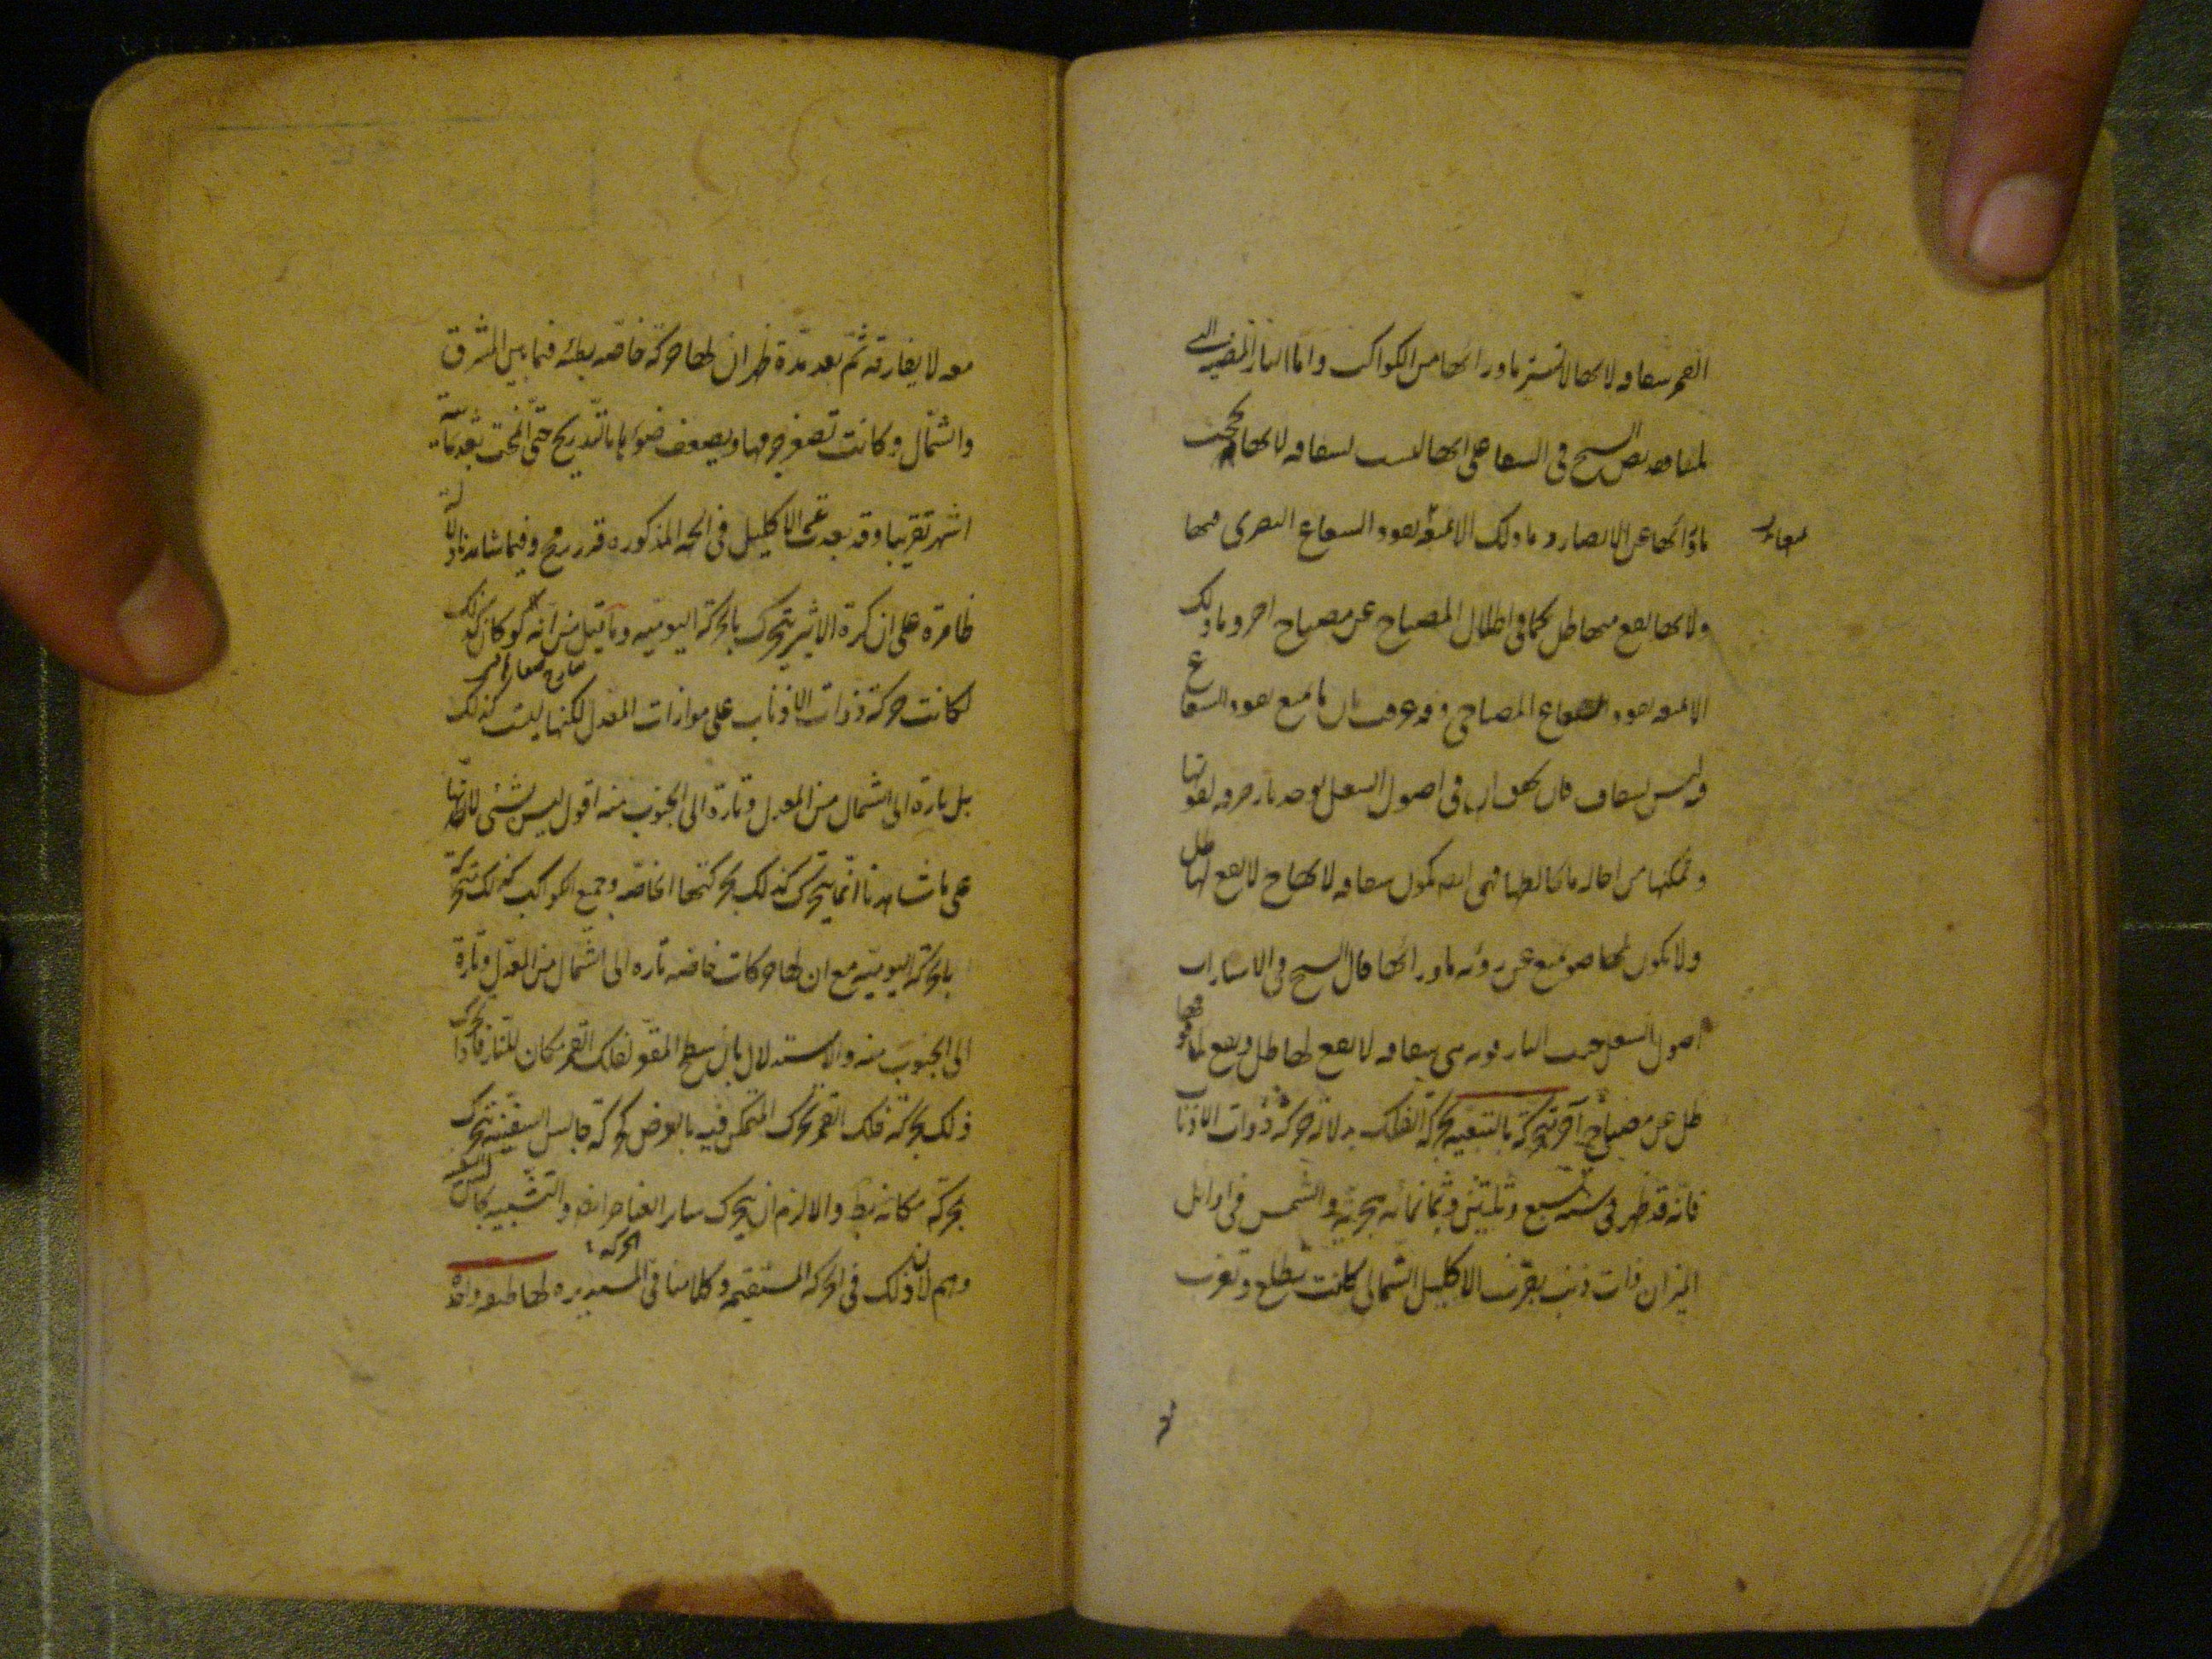 القمر شفافه لانها لا تستر ماورائها من الكواكب واما النار التى
فى الشفا على انها ليست بشفافه لانها تحجب
ماورائها عن الابصار وما ذلك الا لمنعه نفوذ الشعاع البصرى فيها
ولانها يقع منها ظل كما فى اظلال المصباح عن مصباح اخر وما ذلك
الا لمنعه نفوذ الشعاع المصباحى وقد عرف بان مانع نفوذ الشعاع
فى اصول الشعل توجد نار صرفه لقوتها
وتمكنها من احاله ما يخالطها فهى ايضا تكون شفافه لانها ح لا يقع لها ظل
ولا يكون لها ضو يمنع عن رؤيه ماورائها قال الشيخ فى الاشارات
اصول الشعل حيث النار قويه هى شفافه لا يقع لها ظل ويقع لما فوقها
ظل عن مصباح آخر متحركة بالتبعيه بحركة الفلك بدلالة حركة ذوات الاذناب
فانه قد ظهر فى سنه سبع وثلثين وثمانمائه هجريّه والشمس فى اوايل
الميزان ذات ذنب بقرب الاكليل الشمالى كانت تطلع وتغرب
معه لا يفارقه ثمّ بعد مدّة ظهر ان لها حركة خاصّه بطيئه فيما بين المشرق
والشمال وكانت تصغر جرمها ويضعف ضوءها بالتدريج حتى انمحت بعد ثمانية
اشهر تقريبا وقد بعدت عن الاكليل فى الجهة المذكوره قدر رمح وفيما شاهدناه دلالة
ظاهرة على ان كرة الاثير يتحرك بالحركة اليوميه وما قيل من انه لو كان كذلك
لكانت حركة ذوات الاذناب على موازات المعدل لكنها ليست كذلك
بل تارة الى الشمال من المعدل وتارة الى الجنوب منه اقول ليس بشئ لانها
على ما شاهدنا انما يتحرك كذلك بحركتها الخاصّه وجميع الكواكب كذلك متحركة
بالحركة اليوميّه مع ان لها حركات خاصّه تاره الى الشمال من المعدل وتارة
الى الجنوب منه والاستدلال بان سطح المقعر لفلك القمر مكان للنار فاذا تحرك
ذلك بحركة فلك القمر تحرك المتمكن فيه بالعرض كحركة جالس السفينة بتحرك
بحركة مكانه بط والا لزم ان يتحرك ساير العناصر ايضا والتشبيه بجالس السفينة
وهم لان ذلك فى الحركه المستقيمه وكلامنا فى الحركه المستديره لها طبقه واحدة